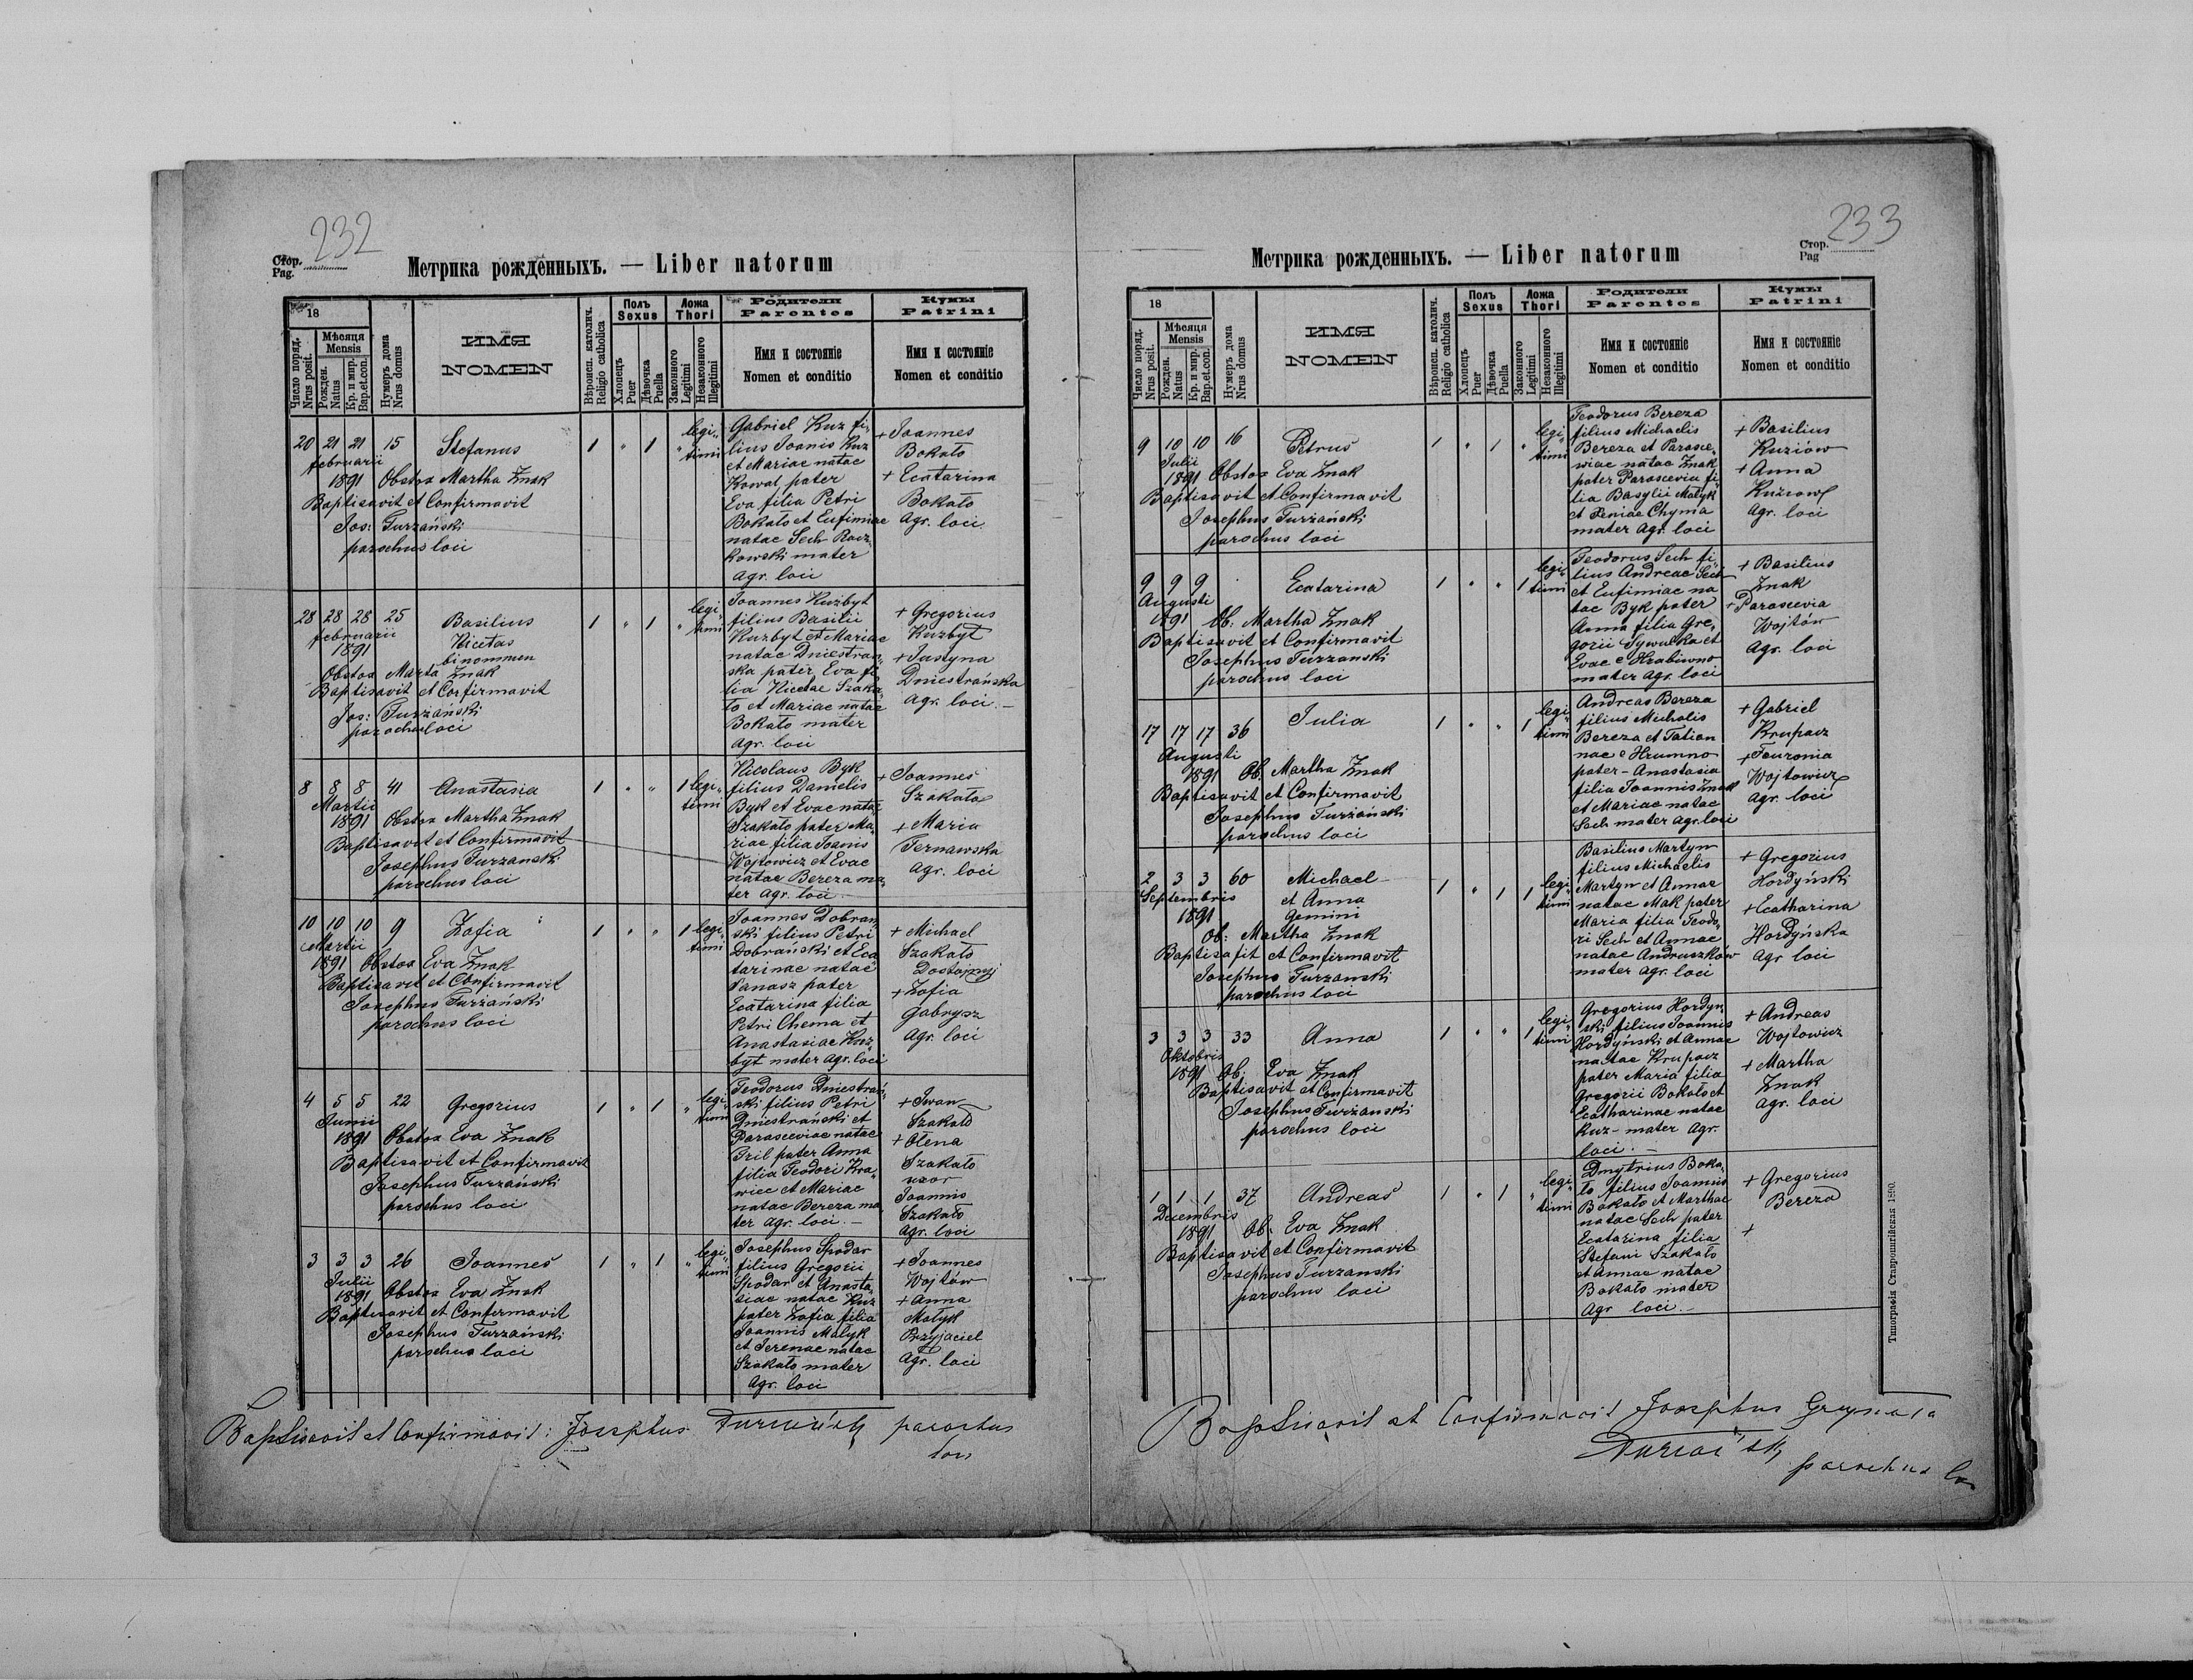 232
Стор.
Pag.
Метрика рожденныхъ. — Liber natorum
18
Число поряд.
Nrus posit.
Мѣсяця
Mensis
Рожден.
Natus
Кр. и мир.
Bap.et.con.
Нумеръ дома
Nrus domus
ИМЯ
NOMEN
Вѣроисп. католич.
Religio catholica
Полъ
Sexus
Хлопецъ
Puer
Дѣвочка
Puella
Ложа
Thori
Законного
Legitimi
Незаконного
Illegitimi
Родители
Parentes
Имя и состояніе
Nomen et conditio
Кумы
Patrini
Имя и состояніе
Nomen et conditio
20 21 21 15 Stefanus 1 " 1 " legi„
timi
februarii
1891 Obstox Martha Znak
Baptisavit et Confirmavit
Jos: Turzański
parochus loci
Gabriel Kuz fi„
lius Joanis Kuz
et Mariae natae
Kowal pater
Eva filia Petri
Bokało et Eufimiae
natae Sech Racz„
kowski mater
agr. loci
+ Joannes
Bokało
+ Ecatarina
Bokało
Agr. loci
28 28 28 25 Basilius 1 " 1 " legi„
timi
februarii
1891
Nicetas
binommen
Obstox Marta Znak
Baptisavit et Confirmavit
Jos: Turzański
parochus loci
Joannes Kuzbyt
filius Basilii
Kuzbyt et Mariae
natae Dniestrań„
ska pater Eva fi„
lia Nicetae Szaka„
ło et Mariae natae
Bokało mater
agr. loci
+ Gregorius
Kuzbyt
+ Justyna
Dniestrańska
agr. loci. —
8 8 8 41 Anastasia 1 " " 1 legi„
timi
Martii
1891 Obstox Martha Znak
Baptisavit et Confirmavit
Josephus Turzanski
parochus loci
Nicolaus Byk
filius Danielis
Byk et Evae natae
Szakało pater Ma„
riae filia Joanis
Wojtowicz et Evae
natae Bereza ma„
ter agr. loci
+ Joannes
Szakało
+ Maria
Ternawska
agr. loci
10 10 10 9 Zofia 1 " " 1 legi„
timi
Martii
1891 Obstox Eva Znak
Baptisavit et Confirmavit
Josephus Turzański
parochus loci
Joannes Dobrań„
ski filius Petri
Dobrański et Eca„
tarinae natae
Panasz pater
Ecatarina filia
Petri Chema et
Anastasiae Kuz„
byt mater agr. loci
+ Michael
Szakało
Dostojnyj
+ Zofia
Gabrysz
Agr. loci
4 5 5 22 Gregorius 1 " 1 " legi„
timi
Junii
1891 Obstox Eva Znak
Baptisavit et Confirmavit
Josephus Turzański
parochus loci
Teodorus Dniestrań„
ski filius Petri
Dniestrański et
Parasceviae natae
Tril pater Anna
filia Teodori Kra„
wiec et Mariae
natae Bereza ma„
ter agr. loci. —
+ Iwan
Szakało
+ Ołena
Szakało
uxor
Joannis
Szakało
Agr. loci
3 3 3 26 Joannes 1 " 1 " legi„
timi
Julii
1891 Obstox Eva Znak
Baptisavit et Confirmavit
Josephus Turzański
parochus loci
Josephus Spodar
filius Gregorii
Spodar et Anasta„
siae natae Kuz
pater Zofia filia
Joannis Małyk
et Jerenae natae
Szakało mater
agr. loci
+ Joannes
Wojtów
+ Anna
Małyk
Przyjaciel
Agr. loci
Baptisavit et Confirmavit: Josephus Turzański parochus
loci
233
Стор.
Pag
Метрика рожденныхъ. — Liber natorum
18
Число поряд.
Nrus posit.
Мѣсяця
Mensis
Рожден.
Natus
Кр. и мир.
Bap.et.con.
Нумеръ дома
Nrus domus
ИМЯ
NOMEN
Вѣроисп. католич.
Religio catholica
Полъ
Sexus
Хлопецъ
Puer
Дѣвочка
Puella
Ложа
Thori
Законного
Legitimi
Незаконного
Illegitimi
Родители
Parentes
Имя и состояніе
Nomen et conditio
Кумы
Patrini
Имя и состояніе
Nomen et conditio
9 10 10 16 Petrus 1 " 1 " legi„
timi
Julii
1891 Obstox Eva Znak
Baptisavit et Confirmavit
Josephus Turzański
parochus loci
Teodorus Bereza
filius Michaelis
Bereza et Parasce„
wiae natae Znak
pater Parascevia fi„
lia Basylii Małyk
et Xeniae Chyma
mater agr. loci
+ Basilius
Kuziów
+ Anna
Kuziow
agr. loci
9 9 9 Ecatarina 1 " " 1 legi„
timi
Augusti
1891 Ob. Martha Znak
Baptisavit et Confirmavit
Josephus Turzanski
parochus loci
Teodorus Sech fi„
lius Andreae Sech
et Eufimiae na
tae Byk pater
Anna filia Gre„
gorii Sywulka et
Evae e Hrabiwno
mater agr. loci
+ Basilius
Znak
+ Parascevia
Wojtów
agr. loci
17 17 17 36 Julia 1 " " 1 legi„
timi
Augusti
1891 Ob. Martha Znak
Baptisavit et Confirmavit
Josephus Turzański
parochus loci
Andreas Bereza
filius Michalis
Bereza et Tatian
nae e Hrumno
pater – Anastasia
filia Joannis Znak
et Mariae natae
Sech mater agr. loci
+ Gabriel
Krupacz
+ Feuronia
Wojtowicz
agr. loci
2 3 3 60 Michael 1 " 1 1 legi„
timi
Septembris
1891
et Anna
gemini
Ob: Martha Znak
Baptisafit et Confirmavit
Josephus Turzanski
parochus loci
Basilius Martyn
filius Michaelis
Martyn et Annae
natae Mak pater
Maria filia Teodo„
ri Sech et Annae
natae Andruszków
mater agr. loci
+ Gregorius
Hordyński
+ Ecatharina
Hordyńska
agr loci
3 3 3 33 Anna 1 " " 1 legi„
timi
Oktobris
1891 Ob. Eva Znak
Baptisavit et Confirmavit
Josephus Turzanski
parochus loci
Gregorius Hordyń„
ski filius Joannis
Hordyński et Annae
natae Krupacz
pater Maria filia
Gregorii Bokało et
Ecatharinae natae
Kuz – mater Agr.
loci. —
+ Andreas
Wojtowicz
+ Martha
Znak
agr. loci
1 1 1 37 Andreas 1 " 1 " legi„
timi
Decembris
1891 Ob. Eva Znak
Baptisavit et Confirmavit
Josephus Turzanski
parochus loci
Dmytrius Boka„
ło filius Joannis
Bokało et Marthae
natae Sech pater
Ecatarina filia
Stefani Szakało
et Annae natae
Bokało mater
Agr loci. —
+ Gregorius
Bereza
+
Типографія Ставропигійская 1890.
Baptisavit et Confirmavit Josephus Grymala
Turzański
parochus loci